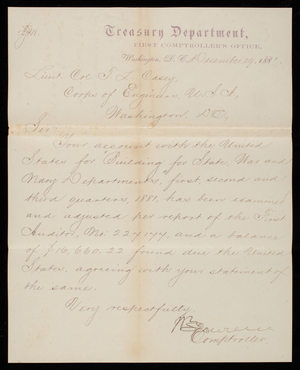 Treasury Department,
FIRST COMPTROLLER'S OFFICE,
Washington, D. C., December 29, 1881
Lieut. Col. T. L. Casey,
Corps of Engineers, U.S.A,
Washington, D.C.
Sir:
Your account with the United
States for "Building for State, War and
Navy Departments, first, second and
third quarters, 1881, has been examined
and adjusted per report of the First
Auditor, No. 224,144, and a balance
of $16,660.22 found due the United
States, agreeing with your statement of
the same.
Very respectfully
Comptroller.